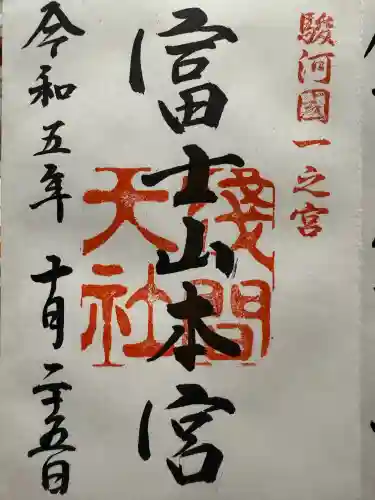 駿河國一之宮
富士山本宮
淺間大社
令和五年十月二十五日